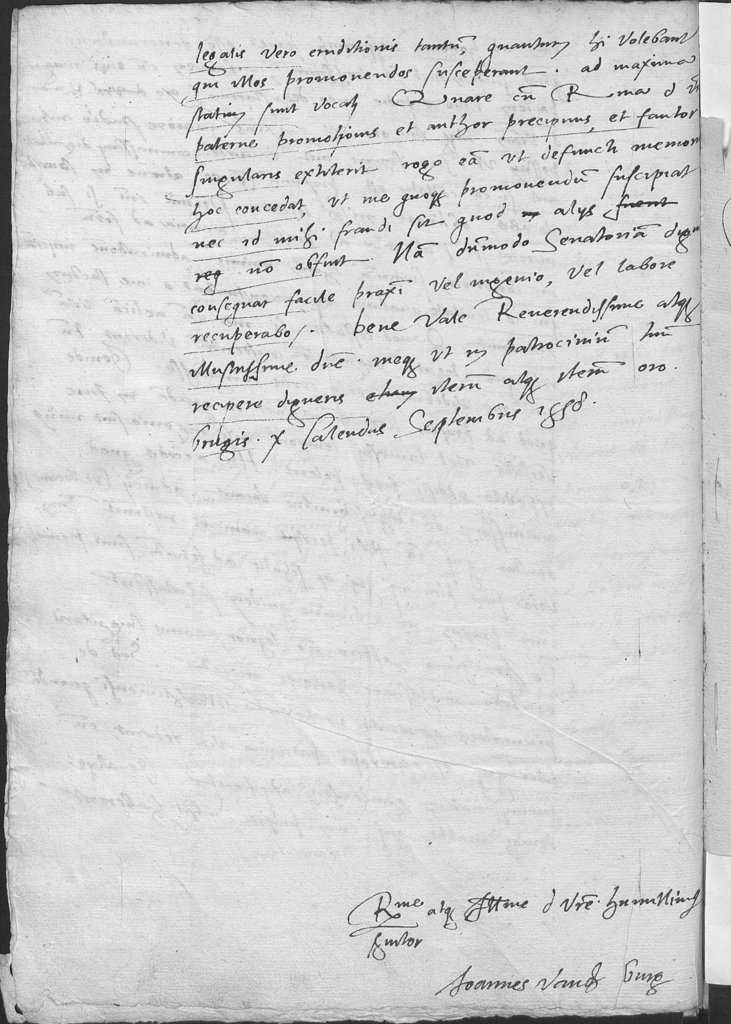 legalis vero eruditionis tantū quantum hi volebant
qui illos promovendos susceperant. ad maxima
statim sunt vocati Quare cū Rma d vr̄a
paterne promotionis et author precipuus, et fautor
singularis extiterit rogo eā ut defuncti memor
hoc concedat, ut me quoq promovendū suscipiat
nec id mihi fraudi sit quod alijs
non obfuit. Nā dūmodo Senatoriam
consequar facile praxī vel ingenio, vel labore
recuperabo. bene vale Reverendissime atq
illustrissime dn̄e. meq ut in patrociniū tuū
recipere digneris iterū atq iterū oro.
brugis. x Calendas Septembris 1558.
Rme atq Illme d Vrē. humillimus
Joannes Vande burg